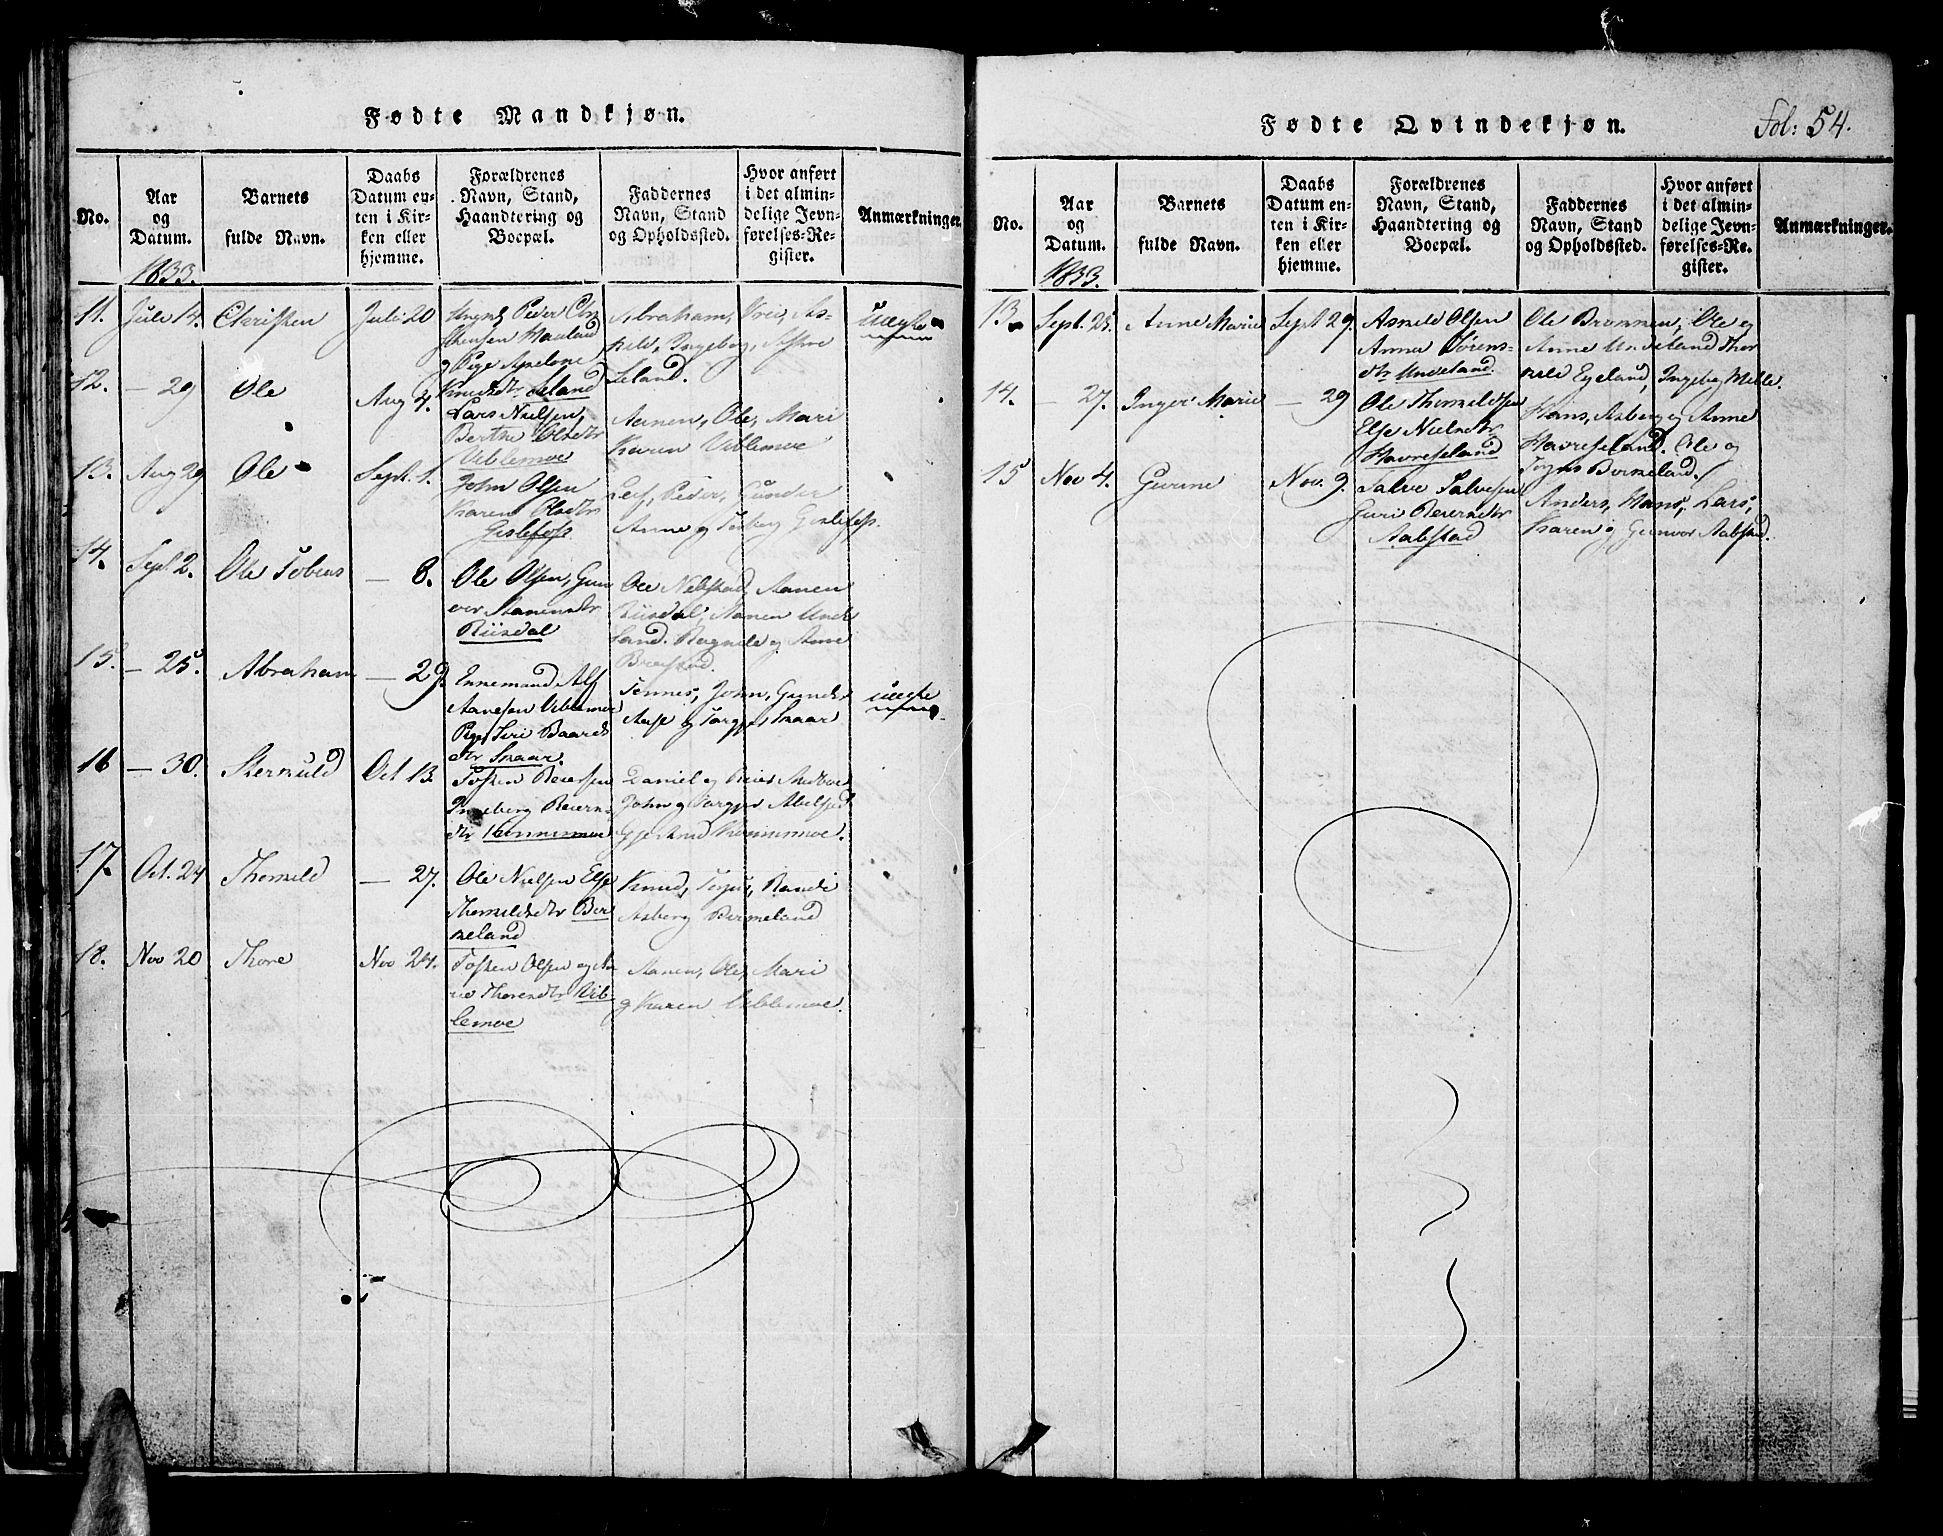 Fødte Mandkjøn.
No.
Aar
og
Datum.
Barnets
fulde Navn.
Daabs
Datum en-
ten i Kir-
ken eller
hjemme.
Forældrenes
Navn, Stand,
Haandtering og
Boepæl.
Faddernes
Navn, Stand
og Opholdssted.
Hvor anført
i det almin-
delige Jevn-
førelses-Re-
gister.
Anmærkninger.
1833.
11. Juli 14. Christen Juli 20
Peder
Abraham,
Ingeborg,
Leland.
uægte
12. — 29 Ole Aug 4.
Lars Nielsen,
Berthe Olsdtr
Ublemoe
Aanen, Ole, Mari
Karen Ublemoe
13. Aug 29 Ole Sept. 1.
John Olsen
Karen Olsdtr
Gislefoss
Leif, Peder, Gunder
Anne og Gislefoss.
14. Sept 2. Ole Tobias — 8.
Ole Olsen, Gun
vor Aanensdtr
Riisdal
Ole Aanen
Riisdal, Aanen Unde
land. Ragnile og Anne
Breistad.
15. — 25. Abraham — 29.
Ennemand Alf
Aanesen Ublemoe
Pige Siri Baards
dtr Snaar.
Tønnes, John, Gunder
Aase og Torgjer Snaar
uægte
16 — 30. Oct 13.
Tosten Reiersen
Ingeborg Reiers-
dtr
Daniel og
John og Torgjer
Gjertrud
17. Oct. 24 Thorkild — 27.
Ole Nielsen Else
Thorkildsdtr Bir
keland
Knud, Torjus, Randi
Asberg Birkeland
18. Nov 20 Thore Nov 24.
Tosten Olsen og
Thoresdtr Ub-
lemoe
Aanen, Ole, Mari
og Karen Ublemoe.
Fødte Qvindekjøn.
Fol: 54.
No.
Aar
og
Datum.
Barnets
fulde Navn.
Daabs
Datum en-
ten i Kir-
ken eller
hjemme.
Forældrenes
Navn, Stand,
Haandtering og
Boepæl.
Faddernes
Navn, Stand
og Opholdssted.
Hvor anført
i det almin-
delige Jevn-
førelses-Re-
gister.
Anmærkninger.
1833.
13. Sept. 25. Anne Marie Sept 29.
Asmeld Olsen
Anna Sørens-
dtr Undeland.
Ole Brønnen, Ole og
Anne Undeland Thor
kild Eyeland, Ingeborg Melle.
14. — 27. Inger Marie — 29
Ole Thorkildsen
Else Nielsdtr
Havreseland
Hans, Asberg og Anne
Havreseland. Ole og
Birkeland.
15 Nov 4. Gurine Nov. 9.
Salve Salvesen
Guri Reiersdtr
Aabestad
Anders, Hans, Lars,
Karen og Gunvor Aabestad.